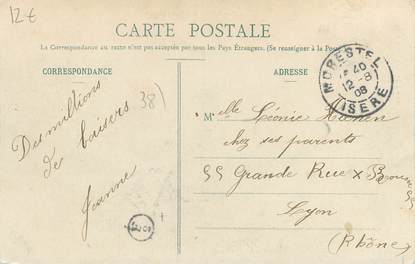 12€
CARTE POSTALE
La Correspondance au recto n'est pas acceptée par tous les Pays Étrangers. (Se renseigner à la Poste
CORRESPONDANCE
ADRESSE
MORESTEL
40
12-8
08
ISÈRE
Des millions
de baisers
38)
Jeanne
Melle Léonie
chez ses parents
55 Grande Rue X
Lyon
(Rhône)